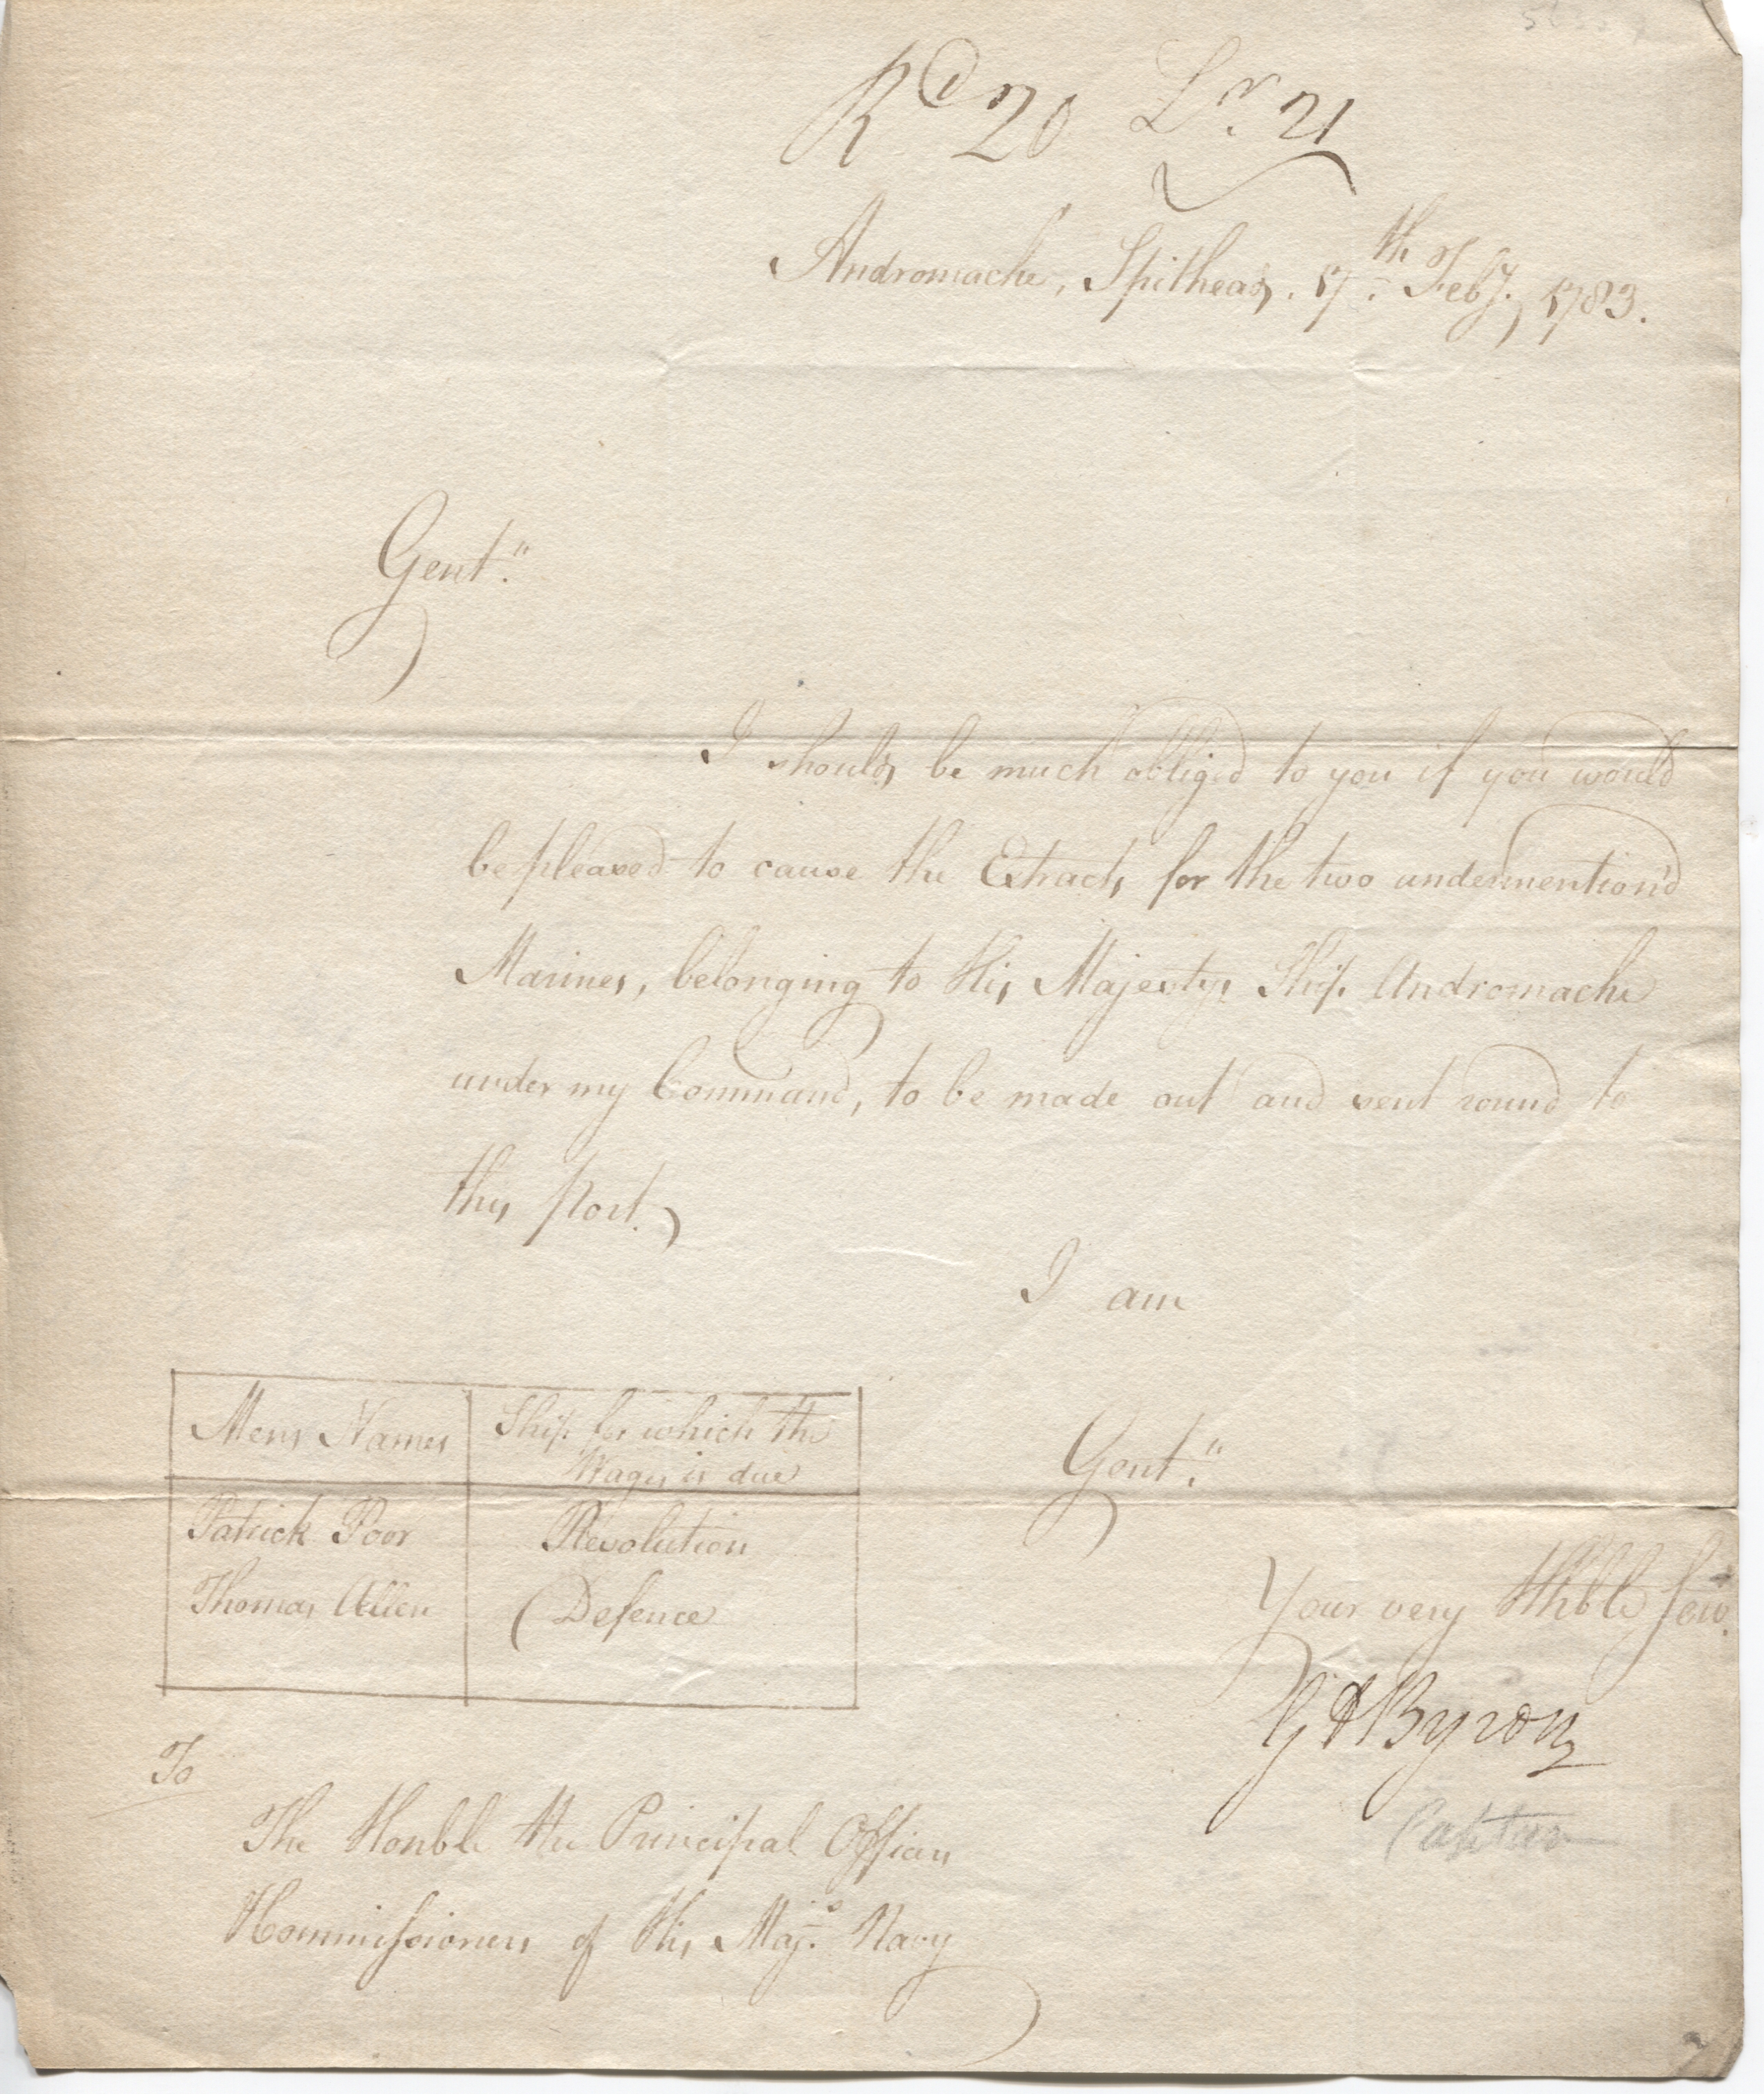 Rd 20 Lr. 21
Andromache, Spithead. 17th. Feby. 1783.
Gent.n
I should be much obliged to you if you would
be pleased to cause the Extracts for the two undermention'd
Marines, belonging to His Majestys Ship Andromache
under my Command, to be made out and sent round to
this Port.
I am
Gent.n
Your very Hbble Serv.
G A Byron
Captain
Mens Names
Ship for which the
Wages is due
Patrick Poor Revolution
Thomas Allen Defence
To
The Honble the Principal Officers
& Commissioners of His Maj.s Navy